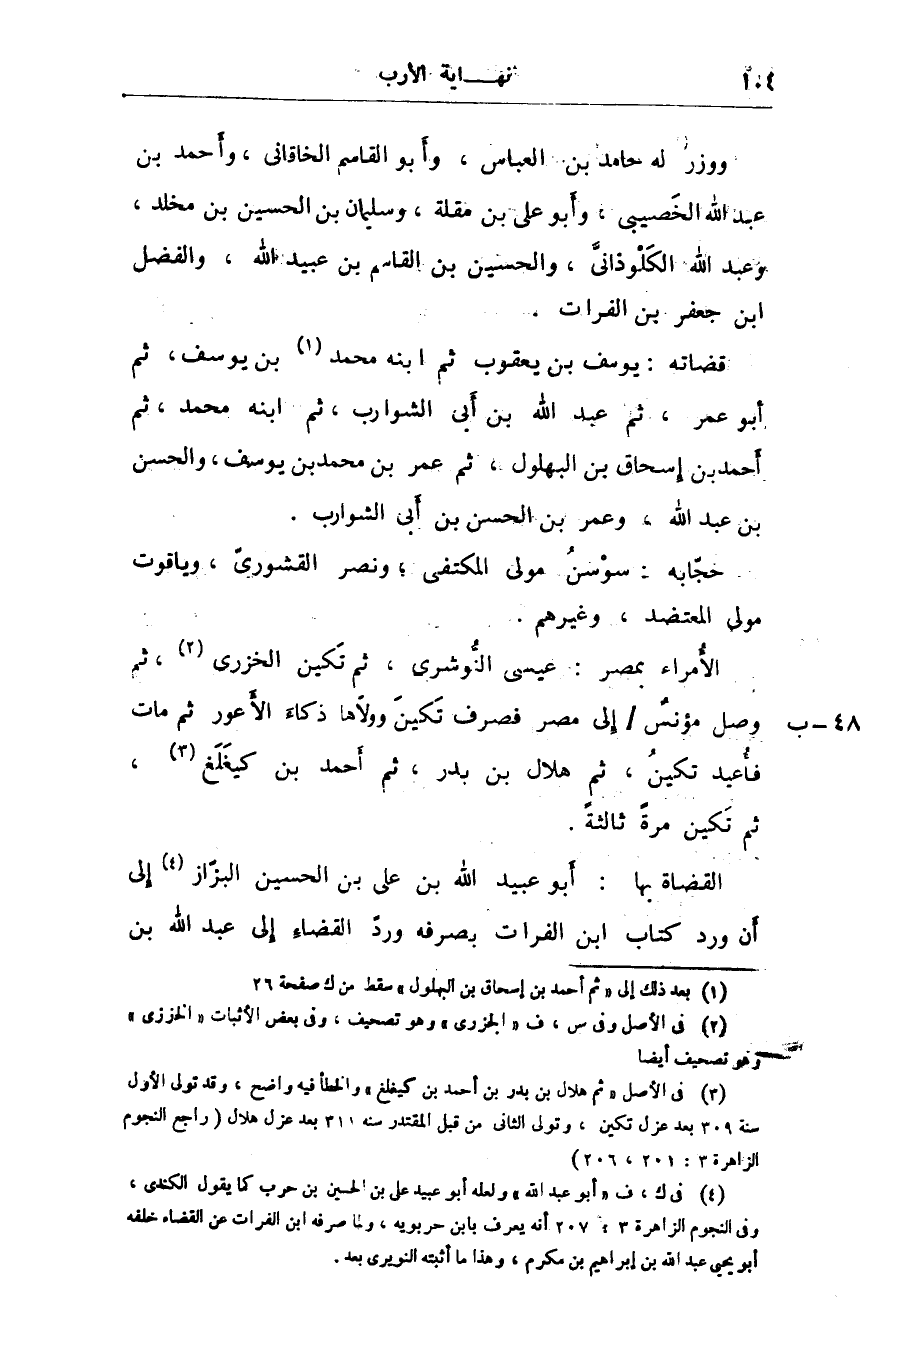 ١٠٤
نهاية الأرب
ووزر له حامد بن العباس ، وأبو القاسم الخاقانى ، وأحمد بن
عبد الله الخَصيبى ، وأبو على بن مقلة ، وسليمان بن الحسين بن مخلد ،
وعبد الله الكَلْوذانىَّ ، والحسين بن القاسم بن عبيد الله ، والفضل
ابن جعفر بن الفرات .
قضاته : يوسف بن يعقوب ثم ابنه محمد (١) بن يوسف ، ثم
أبو عمر ، ثم عبد الله بن أبى الشوارب ، ثم ابنه محمد ، ثم
أحمد بن إسحاق بن البهلول ، ثم عمر بن محمد بن يوسف ، والحسن
بن عبد الله ، وعمر بن الحسن بن أبى الشوارب .
حجّابه : سوْسنُ مولى المكتفى ؛ ونصر القشورىّ ، وياقوت
مولى المعتضد ، وغيرهم .
الأُمراء بمصر : عيسى النُّوشرى ، ثم تَكين الخزرى (٢) ، ثم
٤٨ – ب وصل مؤنسٌ / إلى مصر فصرف تَكينَ وولاَّها ذكاءَ الأعور ثم مات
فأُعيد تكينُ ، ثم هلال بن بدر ، ثم أحمد بن كيغَلَغ (٣) ،
ثم تَكين مرةً ثالثةً .
القضاة بها : أبو عبيد الله بن على بن الحسين البزّاز (٤) إلى
أن ورد كتاب ابن الفرات بصرفه وردّ القضاءِ إلى عبد الله بن
(١) بعد ذلك إلى « ثم أحمد بن إسحاق بن البهلول » سقط من ك صفحة ٢٦
(٢) فى الأصل وفى س ، ف « الجزرى » وهو تصحيف ، وفى بعض الأثبات « الخززى »
وهو تصحيف أيضا
(٣) فى الأصل « ثم هلال بن بدر بن أحمد بن كيغلغ » والخطأ فيه واضح ، وقد تولى الأول
سنة ٣٠٩ بعد عزل تكين ، وتولى الثانى من قبل المقتدر سنه ٣١١ بعد عزل هلال ( راجع النجوم
الزاهرة ٣ : ٢٠١ ، ٢٠٦ )
(٤) فى ك ، ف « أبو عبد الله » ولعله أبو عبيد على بن الحسين بن حرب كما يقول الكندى ،
وفى النجوم الزاهرة ٣ : ٢٠٧ أنه يعرف بابن حربويه ، ولما صرفه ابن الفرات عن القضاء خلفه
أبو يحيى عبد الله بن إبراهيم بن مكرم ، وهذا ما أثبته النويرى بعد .